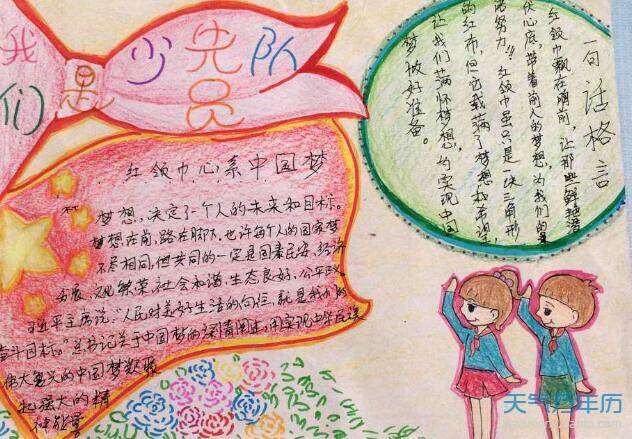 我们是少先队员
红领巾心系中国梦
梦想，决定了一个人的未来和目标。
梦想在前，路在脚下，也许每个人的国家梦
不尽相同，但共同的一定是国泰民安，经济
发展，文化繁荣，社会和谐，生态良好，公平正义
习近平主席说：“人民对美好生活的向往，就是我们的
奋斗目标。”总书记关于中国梦的深情阐述，用实现中华民族
伟大复兴的中国梦
起强大的精
神能量
一句话格言
红领巾飘在胸前，让那
伏心底，带着前人的梦想，为我们的
努力！红领巾虽只是一块三角形
的红布，但它载满了梦想和希望
让我们满怀梦想，为实现中国
梦做好准备。
天气万年历